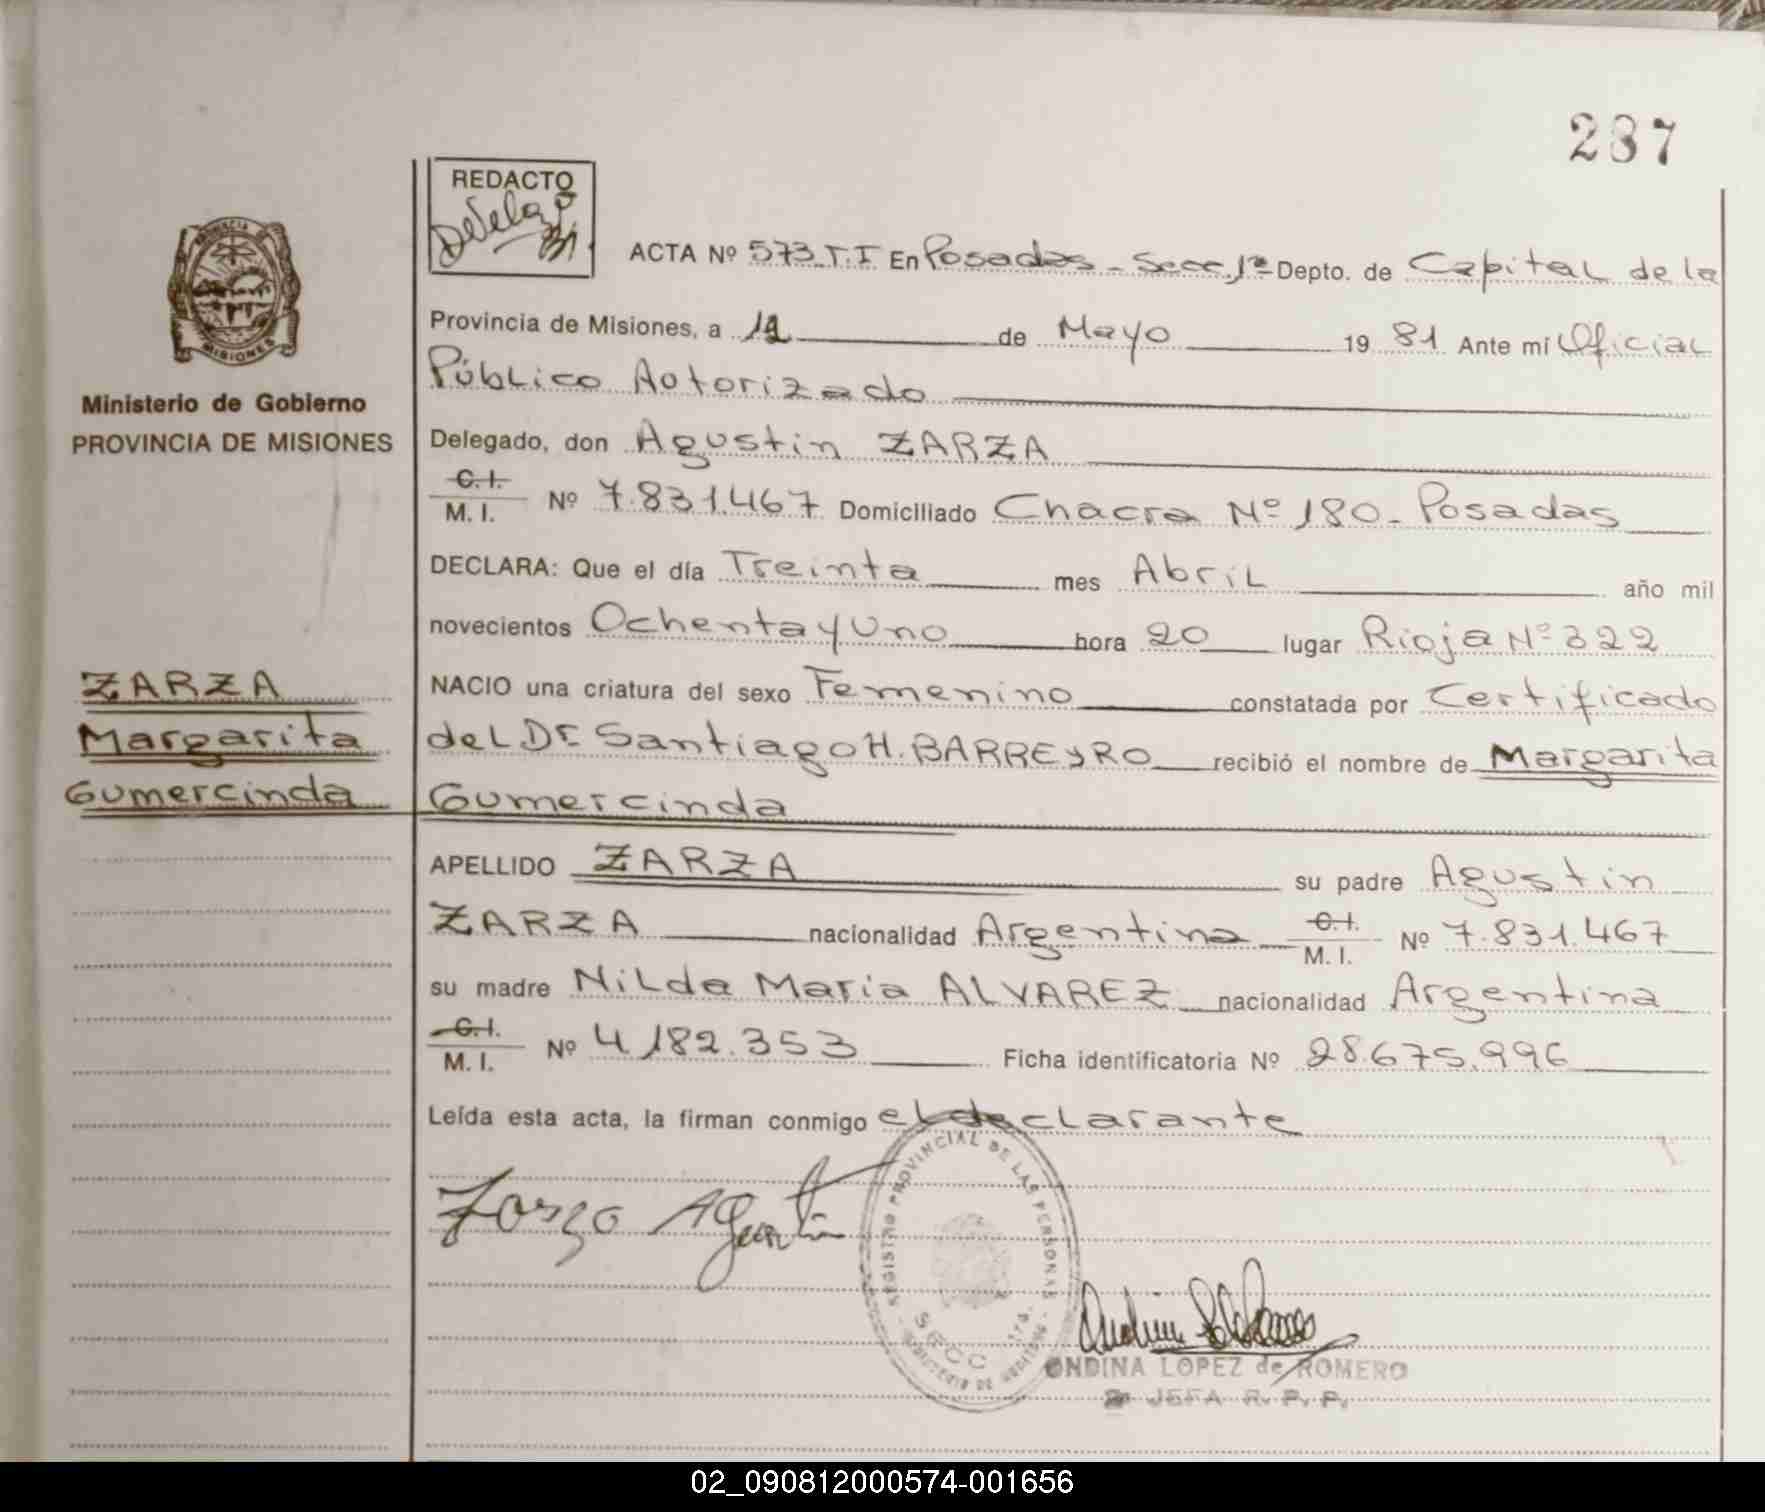 287
REDACTO
ACTA Nº 573 T.I En Posadas - Secc. 1ª Depto. de Capital de la
Provincia de Misiones, a 12 de Mayo 19 81 Ante mí Oficial
Público Autorizado
Ministerio de Gobierno
PROVINCIA DE MISIONES
MISIONES
Delegado, don Agustin ZARZA
C.I.
M. I. Nº 7.831.467 Domiciliado Chacra Nº 180 - Posadas
DECLARA: Que el día Treinta mes Abril año mil
novecientos Ochenta y Uno hora 20 lugar Rioja Nº 322
NACIO una criatura del sexo Femenino constatada por Certificado
del Dr Santiago H. BARREYRO recibió el nombre de Margarita
Gumercinda
ZARZA
Margarita
Gumercinda
APELLIDO ZARZA su padre Agustin
ZARZA nacionalidad Argentina C.I. M. I. Nº 7.831.467
su madre Nilda Maria ALVAREZ nacionalidad Argentina
C.I.
M. I. Nº 4.182.353 Ficha identificatoria Nº 28.675.996
Leída esta acta, la firman conmigo el declarante
Zarza Agustin
REGISTRO PROVINCIAL DE LAS PERSONAS
SECC
ONDINA LOPEZ de ROMERO
JEFA R. P. P.
02_090812000574-001656